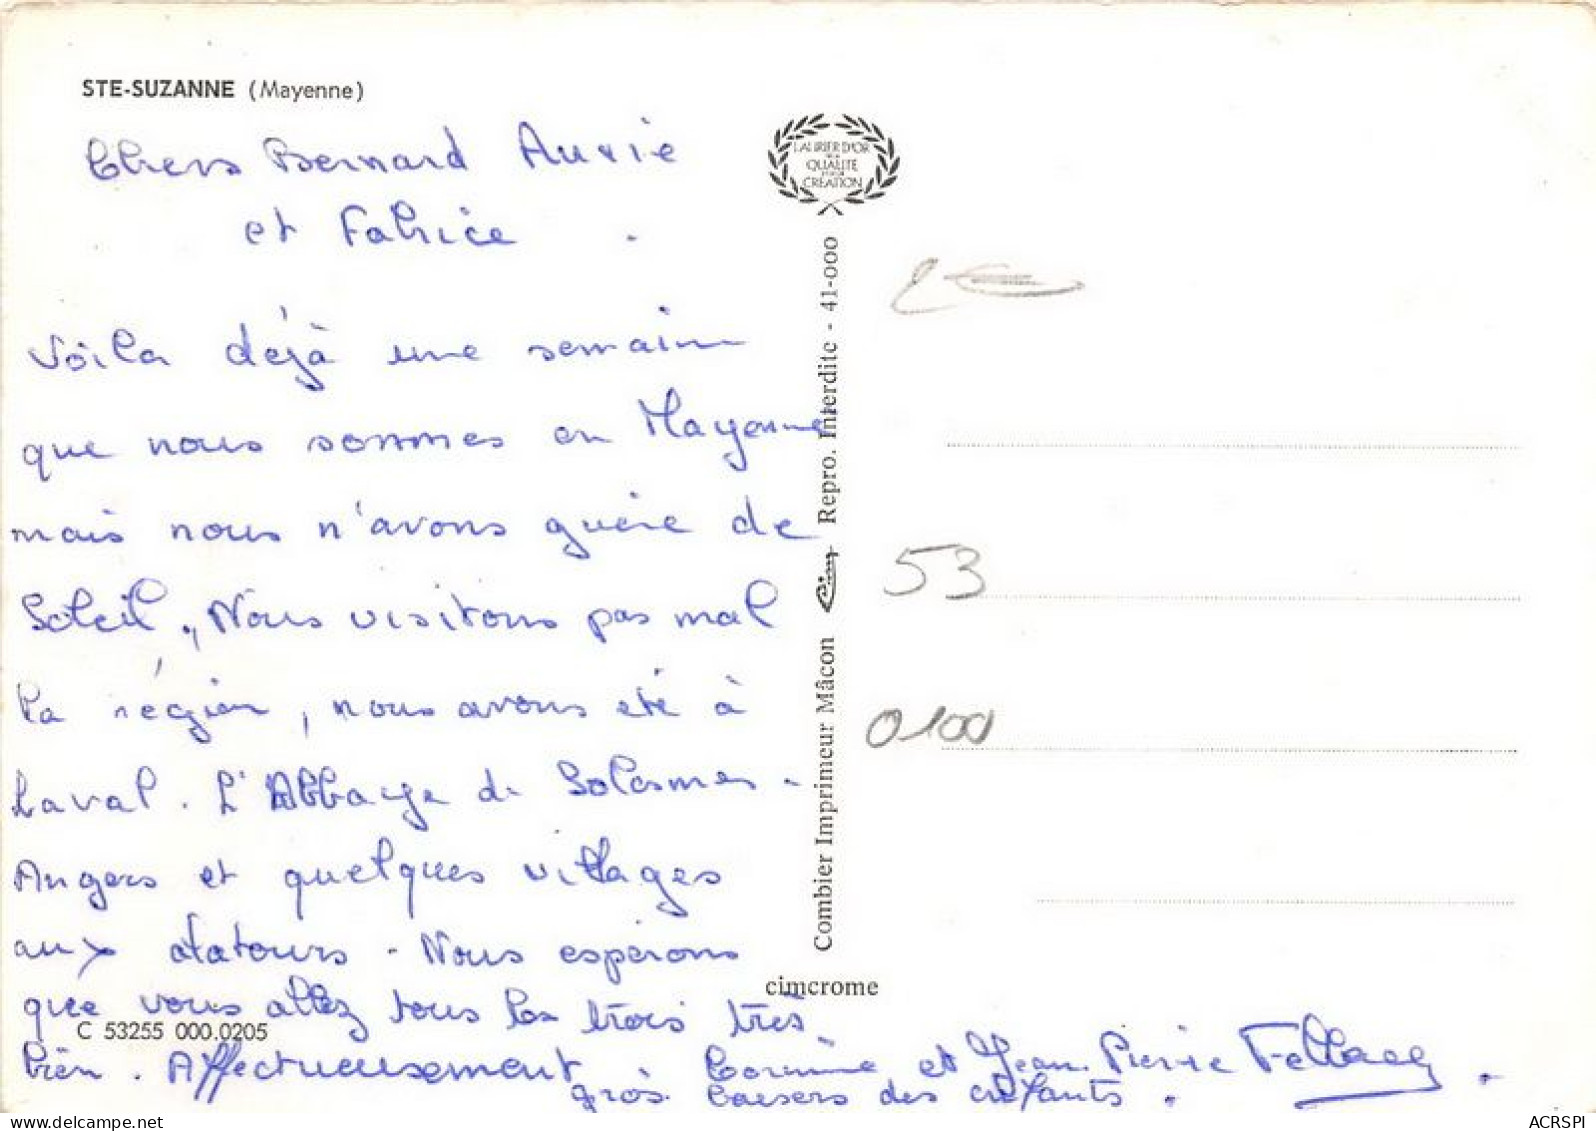 STE-SUZANNE (Mayenne)
Chers Bernard Annie
et Fabrice
Voila déjà une semaine
que nous sommes en Mayenne
mais nous n'avons guère de
Soleil. Nous visitons pas mal
la région, nous avons été à
Laval. L'Abbaye de Solesmes -
Angers et quelques villages
aux alatours - Nous espérons
que vous allez tous les trois très
bien. Affectueusement
Corinne et Jean-Pierre
gros baisers des enfants.
C 53255 000.0205
LAURIER D'OR
DE LA
QUALITÉ
CRÉATION
Combier Imprimeur Mâcon Cim Repro. Interdite - 41-000
cimcrome
53
0100
ACRSPI